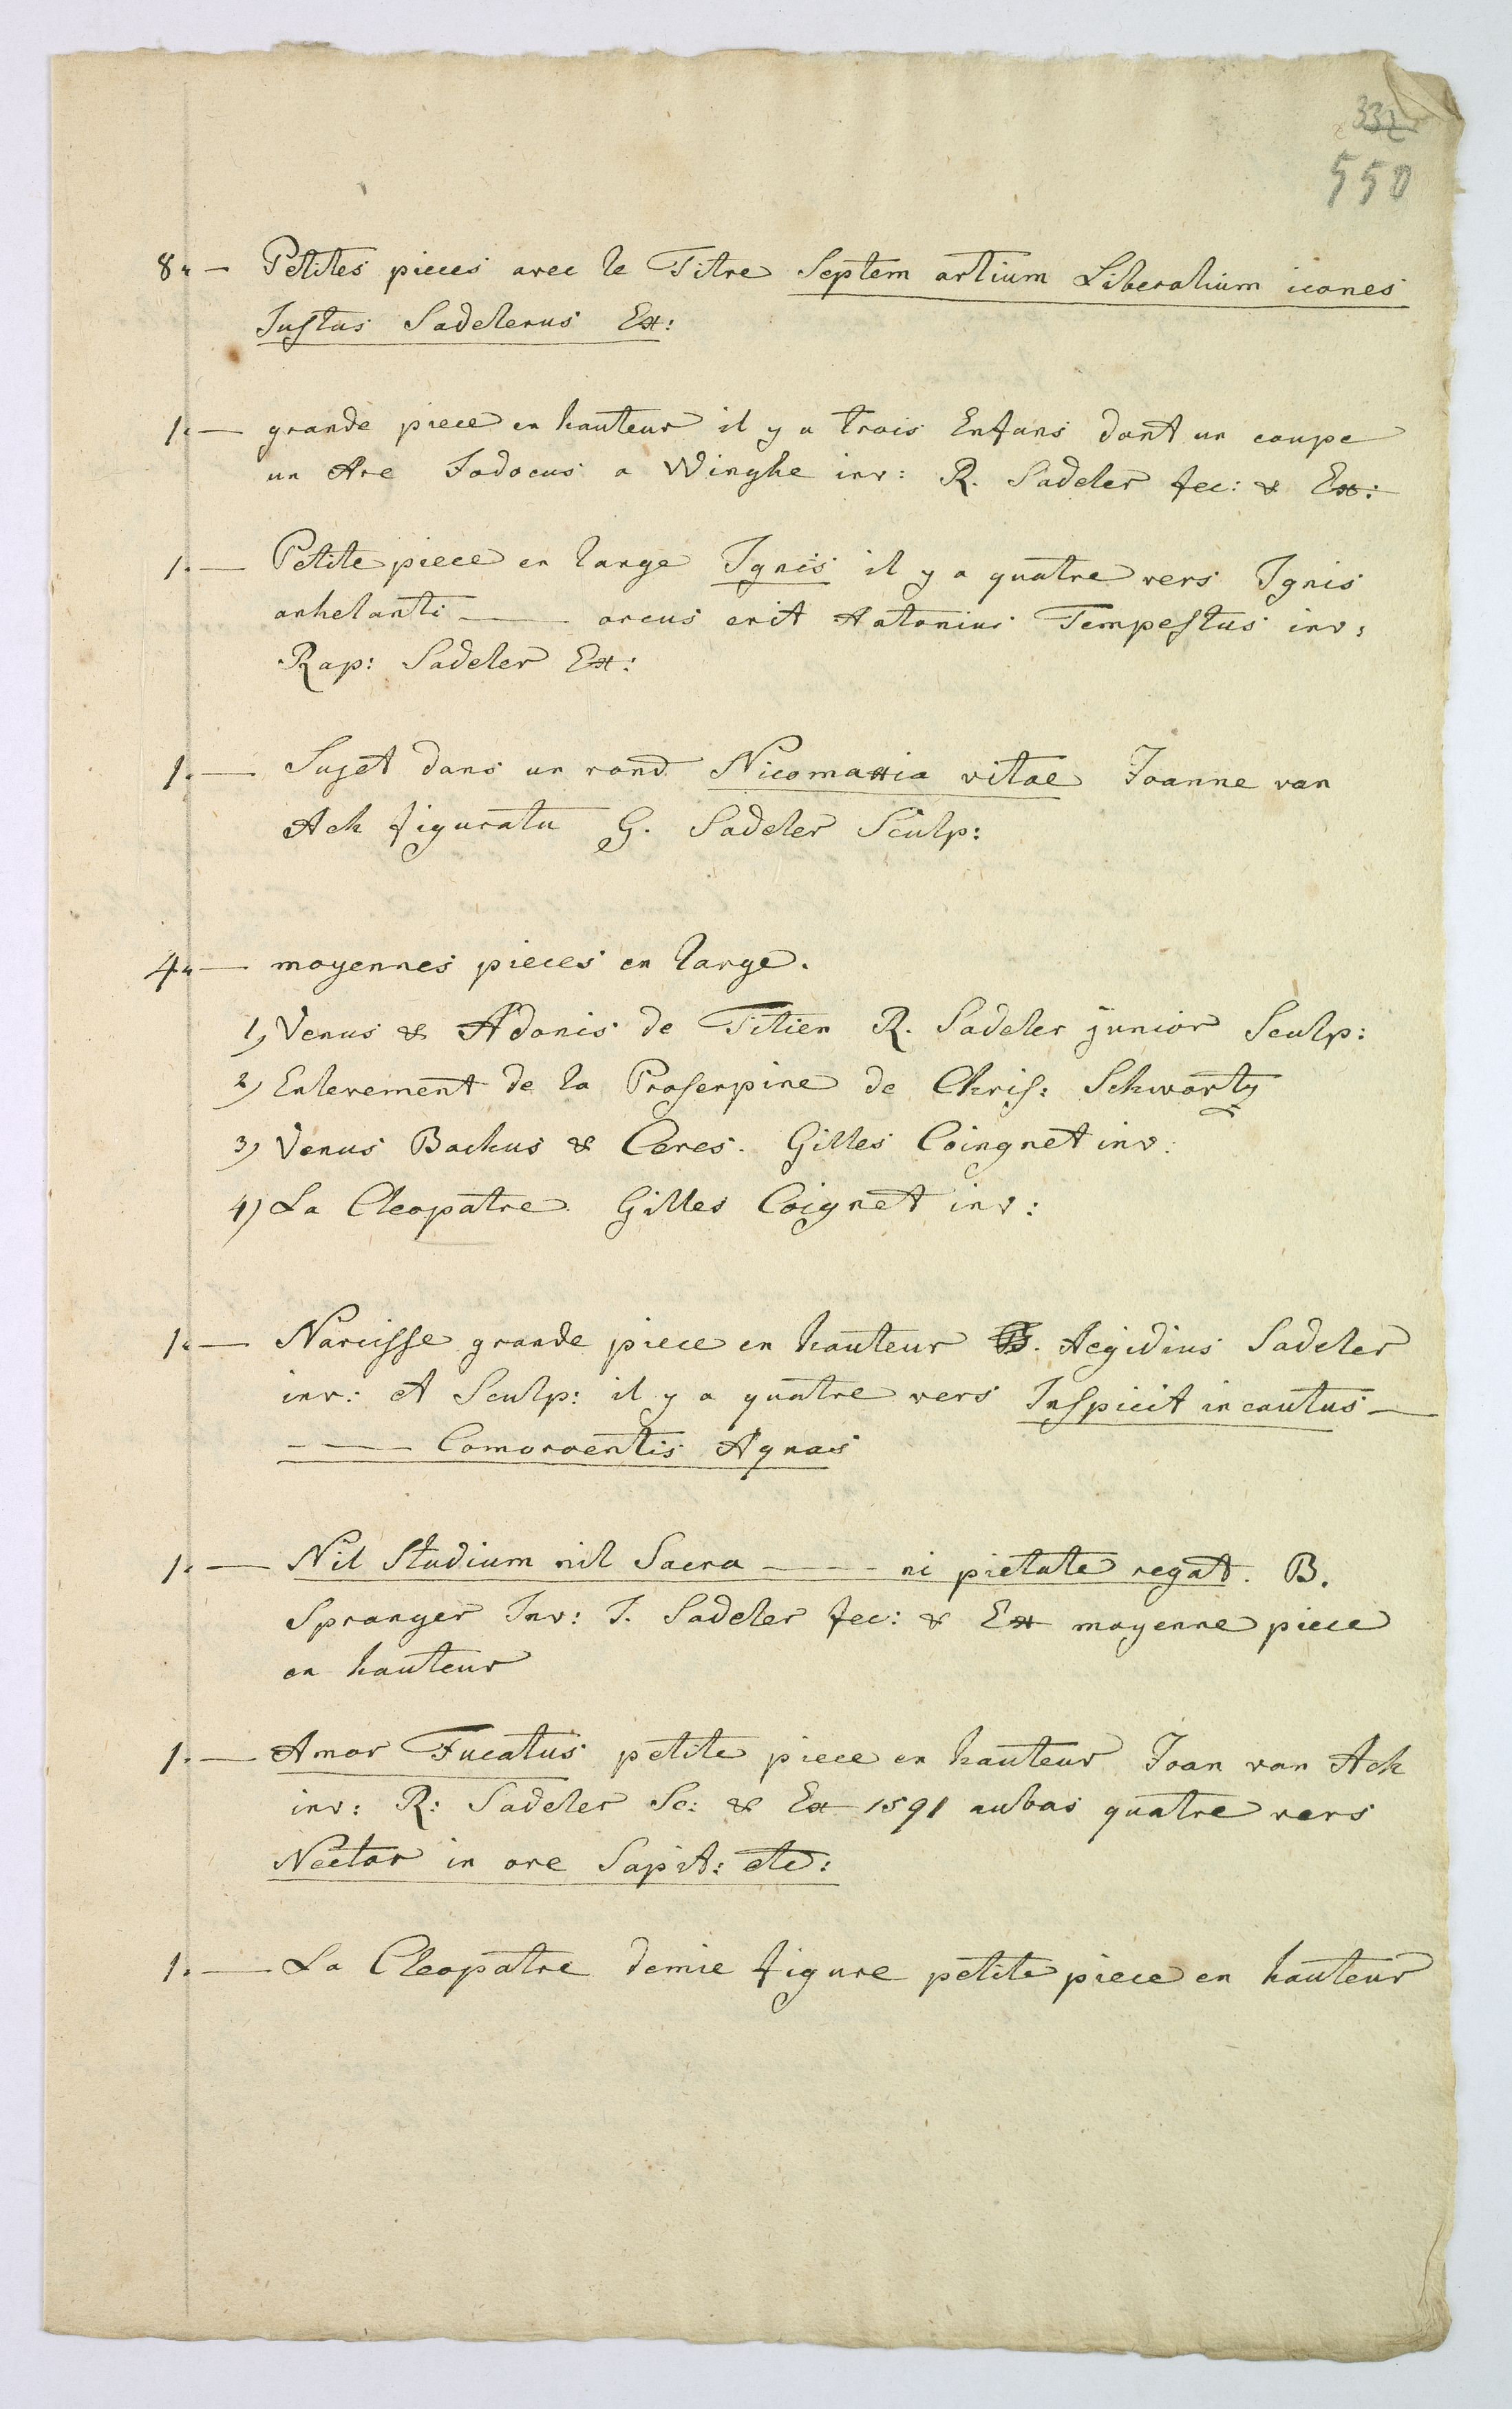 332
550
8. — Petites pieces avec le Titre Septem artium Liberalium icones
Justus Sadelerus Ex:
1. — grande piece en hauteur il y a trois Enfans dont un coupe
un Arc Jodocus a Winghe inv: R. Sadeler fec: & Ex:
1. — Petite piece en large Ignis il y a quatre vers Ignis
anhelanti — arcus erit Antonius Tempestus inv:
Rap: Sadeler Ex:
1. — Sujet dans un rond Nicomaxia vitae Joanne van
Ach figuratu G. Sadeler Sculp:
4. — moyennes pieces en large.
1) Venus & Adonis de Titien R. Sadeler junior Sculp:
2) Enlevement de la Proserpine de Chris: Schwartz
3) Venus Bachus & Ceres. Gilles Coingnet inv:
4) La Cleopatre Gilles Coignet inv:
1. — Narcisse grande piece en hauteur Aegidius Sadeler
inv: et Sculp: il y a quatre vers Inspicit incautus —
— Comoroentis Agnais
1. — Nil Studium nil Sacra — ni pietate regat. B.
Spranger Inv: J. Sadeler fec: & Ex moyenne piece
en hauteur
1. — Amor Fucatus petite piece en hauteur Joan van Ach
inv: R: Sadeler Sc: & Ex 1591 aubas quatre vers
Nectar in ore Sapit: etc:
1. — La Cleopatre demie figure petite piece en hauteur